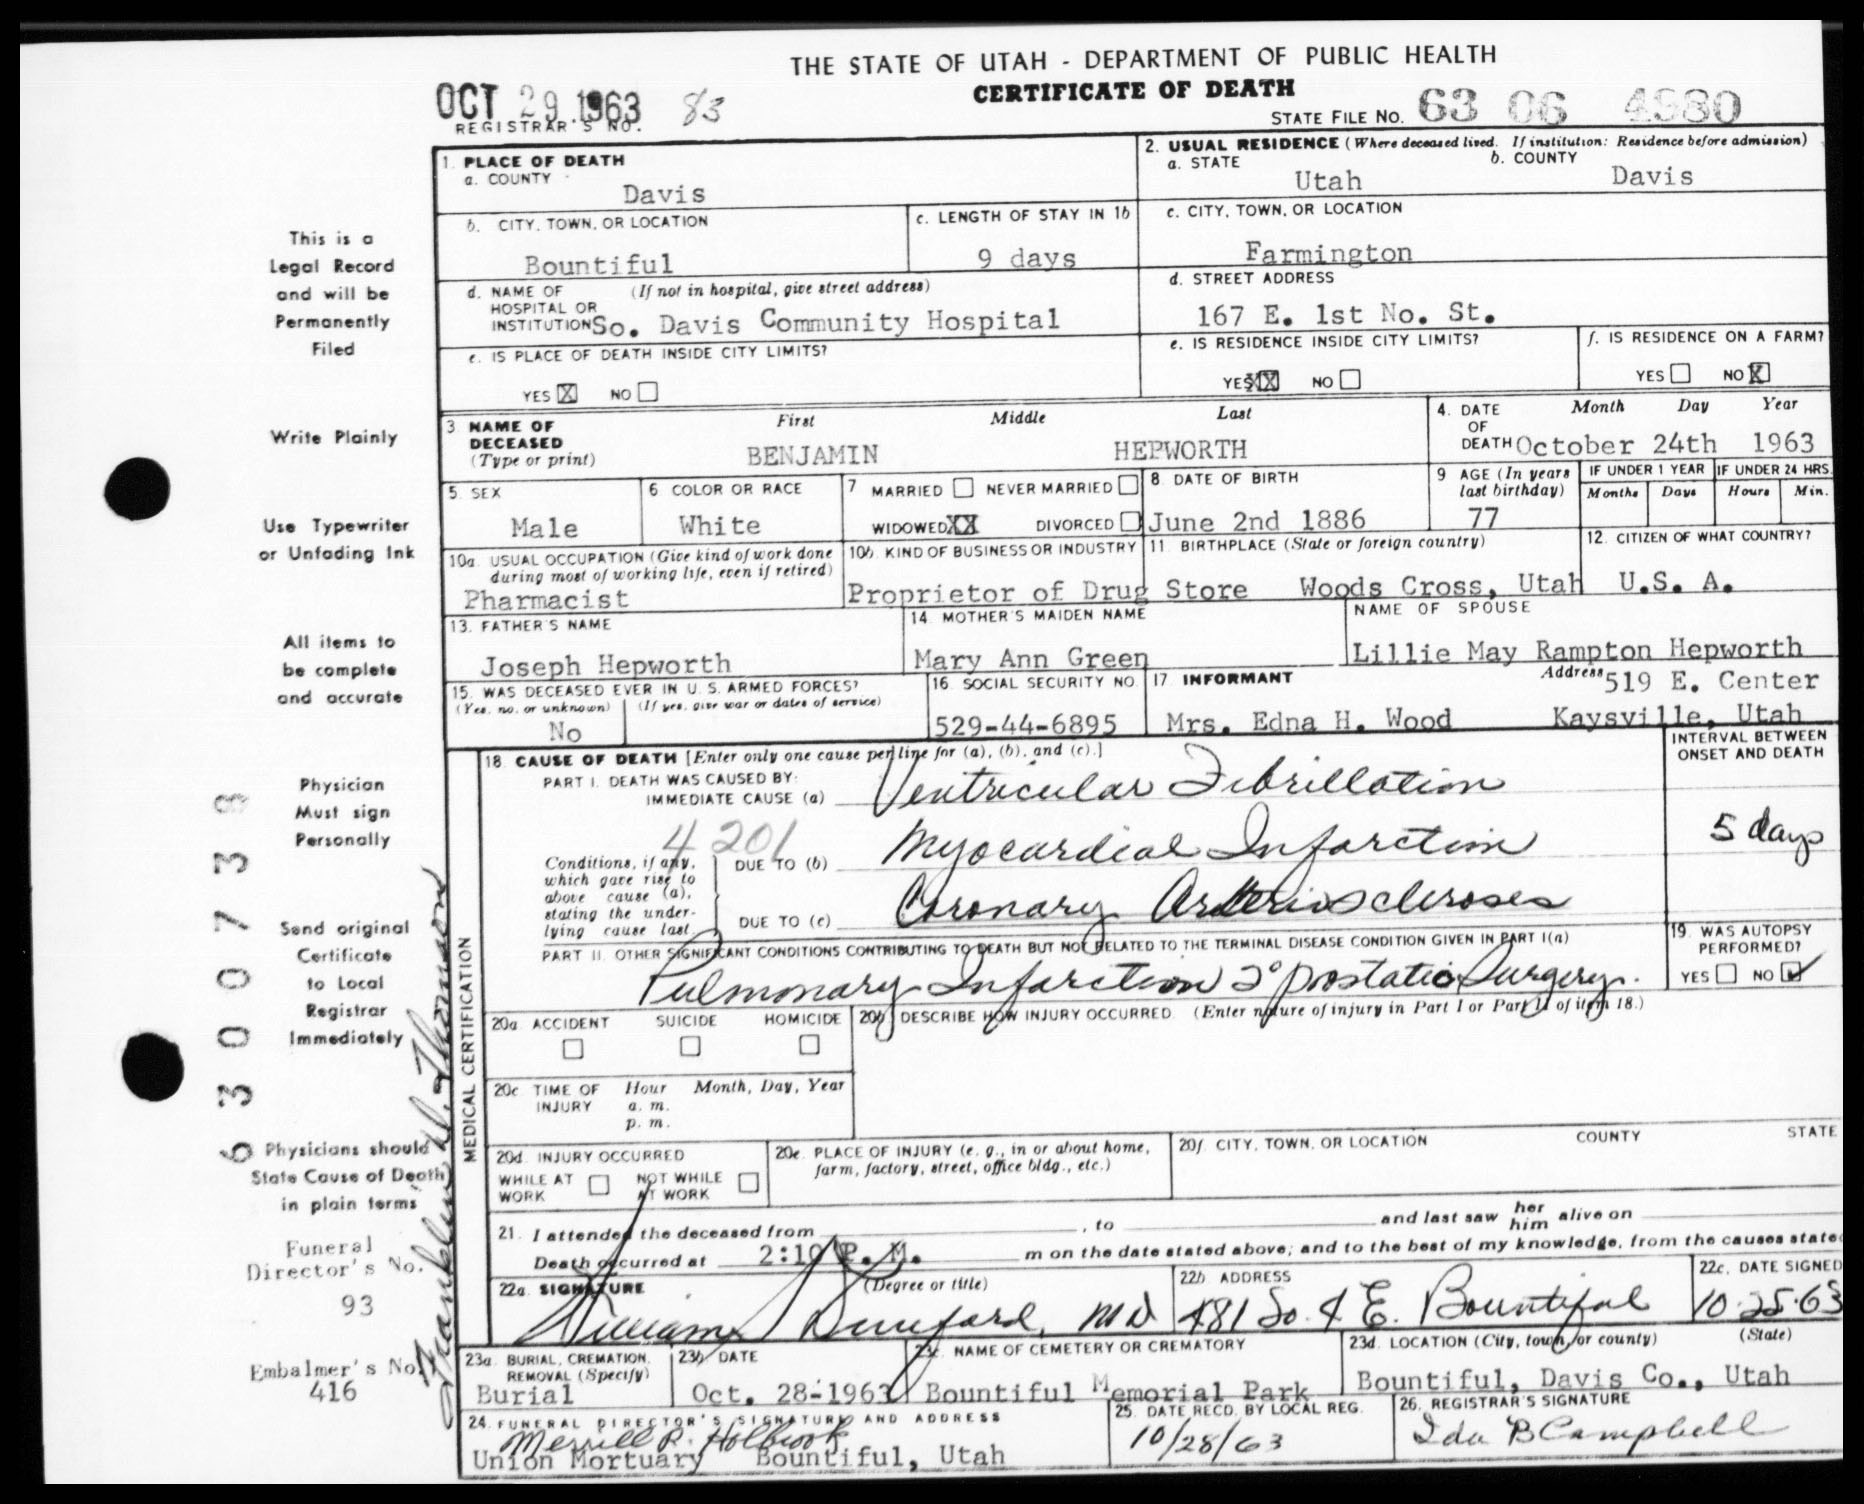 THE STATE OF UTAH - DEPARTMENT OF PUBLIC HEALTH
CERTIFICATE OF DEATH
OCT 29 1963 83
REGISTRAR'S NO.
STATE FILE NO. 63 06 4980
1. PLACE OF DEATH
a. COUNTY
Davis
2. USUAL RESIDENCE (Where deceased lived. If institution: Residence before admission)
a. STATE b. COUNTY
Utah Davis
b. CITY, TOWN, OR LOCATION
Bountiful
c. LENGTH OF STAY IN 1b
9 days
c. CITY, TOWN, OR LOCATION
Farmington
d. NAME OF (If not in hospital, give street address)
HOSPITAL OR
INSTITUTION So. Davis Community Hospital
d. STREET ADDRESS
167 E. 1st No. St.
e. IS PLACE OF DEATH INSIDE CITY LIMITS?
YES X NO
e. IS RESIDENCE INSIDE CITY LIMITS?
YES XX NO
f. IS RESIDENCE ON A FARM?
YES NO X
3. NAME OF
DECEASED
(Type or print)
First Middle Last
BENJAMIN HEPWORTH
4. DATE
OF
DEATH
Month Day Year
October 24th 1963
5. SEX
Male
6 COLOR OR RACE
White
7 MARRIED NEVER MARRIED
WIDOWED XX DIVORCED
8. DATE OF BIRTH
June 2nd 1886
9 AGE (In years
last birthday)
77
IF UNDER 1 YEAR
Months Days
IF UNDER 24 HRS.
Hours Min.
10a. USUAL OCCUPATION (Give kind of work done
during most of working life, even if retired)
Pharmacist
10b. KIND OF BUSINESS OR INDUSTRY
Proprietor of Drug Store
11. BIRTHPLACE (State or foreign country)
Woods Cross, Utah
12. CITIZEN OF WHAT COUNTRY?
U.S. A.
13. FATHER'S NAME
Joseph Hepworth
14. MOTHER'S MAIDEN NAME
Mary Ann Green
NAME OF SPOUSE
Lillie May Rampton Hepworth
15. WAS DECEASED EVER IN U.S. ARMED FORCES?
(Yes, no, or unknown) (If yes, give war or dates of service)
No
16. SOCIAL SECURITY NO.
529-44-6895
17 INFORMANT
Mrs. Edna H. Wood
Address 519 E. Center
Kaysville, Utah
18. CAUSE OF DEATH [Enter only one cause per line for (a), (b), and (c).]
INTERVAL BETWEEN
ONSET AND DEATH
PART I. DEATH WAS CAUSED BY:
IMMEDIATE CAUSE (a) Ventricular Fibrillation
4201
Conditions, if any,
which gave rise to
above cause (a),
stating the under-
lying cause last.
DUE TO (b) Myocardial Infarction
5 days
DUE TO (c) Coronary Arteriosclerosis
PART II. OTHER SIGNIFICANT CONDITIONS CONTRIBUTING TO DEATH BUT NOT RELATED TO THE TERMINAL DISEASE CONDITION GIVEN IN PART I(a)
Pulmonary Infarction 2° prostatic Surgery.
19. WAS AUTOPSY
PERFORMED?
YES NO ✓
20a. ACCIDENT SUICIDE HOMICIDE
20b. DESCRIBE HOW INJURY OCCURRED. (Enter nature of injury in Part I or Part II of item 18.)
20c. TIME OF
INJURY
Hour Month, Day, Year
a. m.
p. m.
20d. INJURY OCCURRED
WHILE AT
WORK
NOT WHILE
AT WORK
20e. PLACE OF INJURY (e. g., in or about home,
farm, factory, street, office bldg., etc.)
20f. CITY, TOWN, OR LOCATION COUNTY STATE
21. I attended the deceased from , to and last saw her him alive on
Death occurred at 2:10 P. M. m on the date stated above; and to the best of my knowledge, from the causes stated
22a. SIGNATURE (Degree or title)
William J Dunford, MD
22b. ADDRESS
481 So. 4 E. Bountiful
22c. DATE SIGNED
10-25-63
23a. BURIAL, CREMATION,
REMOVAL (Specify)
Burial
23b. DATE
Oct. 28-1963
23c. NAME OF CEMETERY OR CREMATORY
Bountiful Memorial Park
23d. LOCATION (City, town, or county) (State)
Bountiful, Davis Co., Utah
24. FUNERAL DIRECTOR'S SIGNATURE AND ADDRESS
Merrill R. Holbrook
Union Mortuary Bountiful, Utah
25. DATE RECD. BY LOCAL REG.
10/28/63
26. REGISTRAR'S SIGNATURE
Ida B Campbell
MEDICAL CERTIFICATION
This is a
Legal Record
and will be
Permanently
Filed
Write Plainly
Use Typewriter
or Unfading Ink
All items to
be complete
and accurate
Physician
Must sign
Personally
Send original
Certificate
to Local
Registrar
Immediately
Physicians should
State Cause of Death
in plain terms
Funeral
Director's No.
93
Embalmer's No.
416
Franklin D. Thomson